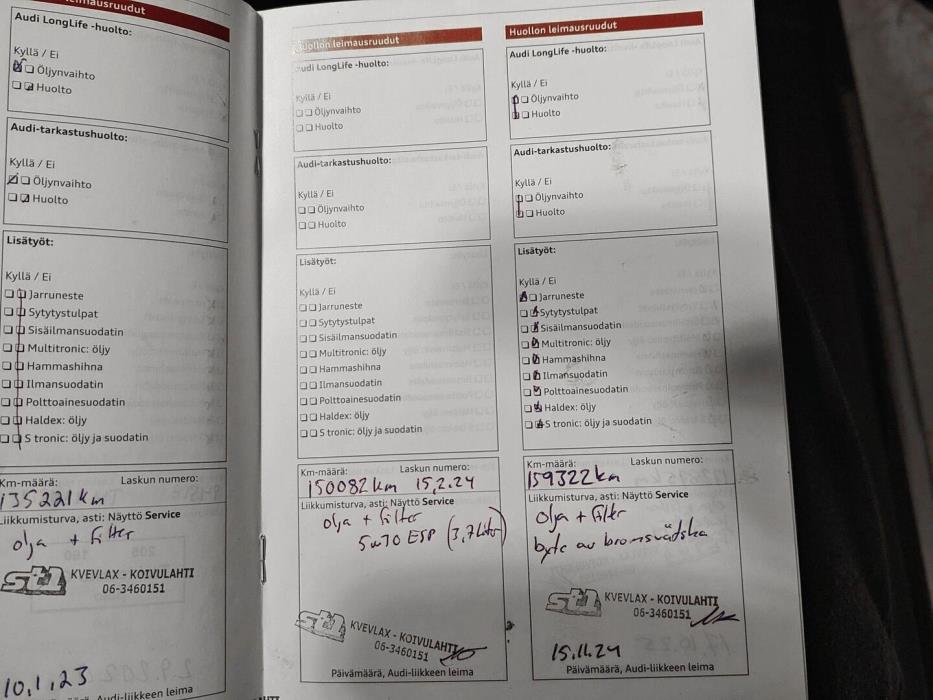 eimausruudut
Audi LongLife -huolto:
Kyllä / Ei
Öljynvaihto
Huolto
Audi-tarkastushuolto:
Kyllä / Ei
Öljynvaihto
Huolto
Lisätyöt:
Kyllä / Ei
Jarruneste
Sytytystulpat
Sisäilmansuodatin
Multitronic: öljy
Hammashihna
Ilmansuodatin
Polttoainesuodatin
Haldex: öljy
S tronic: öljy ja suodatin
Km-määrä: Laskun numero:
135221 km
Liikkumisturva, asti: Näyttö Service
olja + filter
st1 KVEVLAX - KOIVULAHTI
06-3460151
10.1.23
Audi-liikkeen leima
Huollon leimausruudut
Audi LongLife -huolto:
Kyllä / Ei
Öljynvaihto
Huolto
Audi-tarkastushuolto:
Kyllä / Ei
Öljynvaihto
Huolto
Lisätyöt:
Kyllä / Ei
Jarruneste
Sytytystulpat
Sisäilmansuodatin
Multitronic: öljy
Hammashihna
Ilmansuodatin
Polttoainesuodatin
Haldex: öljy
S tronic: öljy ja suodatin
Km-määrä: Laskun numero:
150082 km 15.2.24
Liikkumisturva, asti: Näyttö Service
olja + filter
5w30 ESP (3,7 liter)
st1 KVEVLAX - KOIVULAHTI
06-3460151
Päivämäärä, Audi-liikkeen leima
Huollon leimausruudut
Audi LongLife -huolto:
Kyllä / Ei
Öljynvaihto
Huolto
Audi-tarkastushuolto:
Kyllä / Ei
Öljynvaihto
Huolto
Lisätyöt:
Kyllä / Ei
Jarruneste
Sytytystulpat
Sisäilmansuodatin
Multitronic: öljy
Hammashihna
Ilmansuodatin
Polttoainesuodatin
Haldex: öljy
S tronic: öljy ja suodatin
Km-määrä: Laskun numero:
159322 km
Liikkumisturva, asti: Näyttö Service
olja + filter
byte av bromsvädska
st1 KVEVLAX - KOIVULAHTI
06-3460151
15.11.24
Päivämäärä, Audi-liikkeen leima